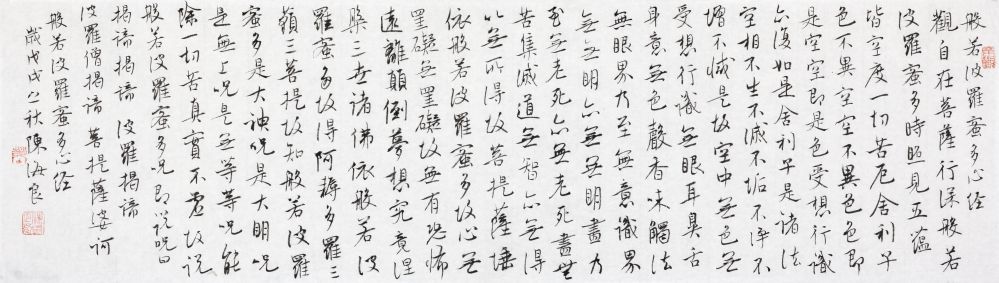 般若波羅蜜多心経
觀自在菩薩行深般若
波羅蜜多時照見五蘊
皆空度一切苦厄舍利子
色不異空空不異色色即
是空空即是色受想行識
亦復如是舍利子是諸法
空相不生不滅不垢不淨不
增不減是故空中無色無
受想行識無眼耳鼻舌
身意無色聲香味觸法
無眼界乃至無意識界
無無明亦無無明盡乃
至無老死亦無老死盡無
苦集滅道無智亦無得
以無所得故菩提薩埵
依般若波羅蜜多故心無
罣礙無罣礙故無有恐怖
遠離顛倒夢想究竟涅
槃三世諸佛依般若波
羅蜜多故得阿耨多羅三
藐三菩提故知般若波羅
蜜多是大神咒是大明咒
是無上咒是無等等咒能
除一切苦真實不虛故說
般若波羅蜜多咒即說咒曰
揭諦揭諦 波羅揭諦
波羅僧揭諦 菩提薩婆訶
般若波羅蜜多心経
歲戊戌之秋陳海良